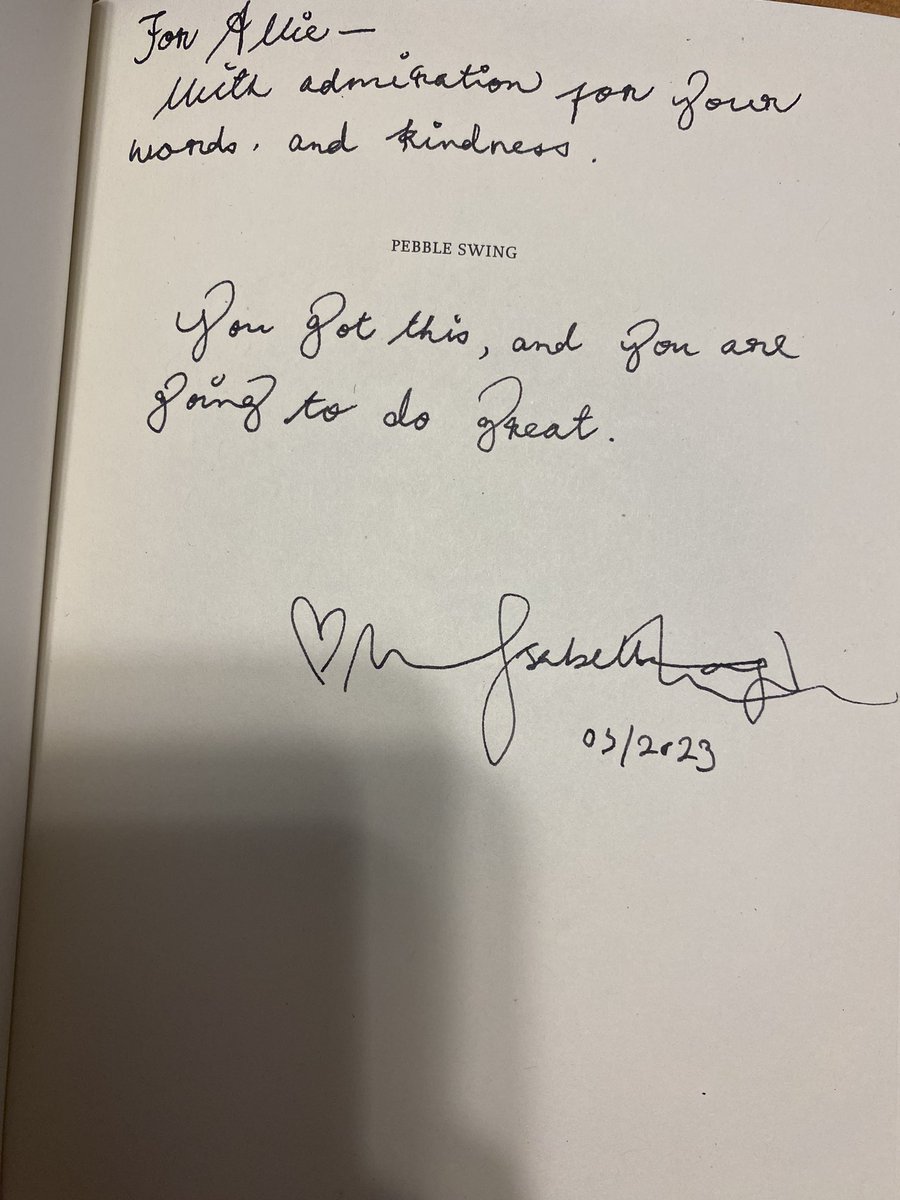 For Allie—
With admiration for your
words, and kindness.
PEBBLE SWING
You got this, and you are
going to do great.
Isabella
03/2023